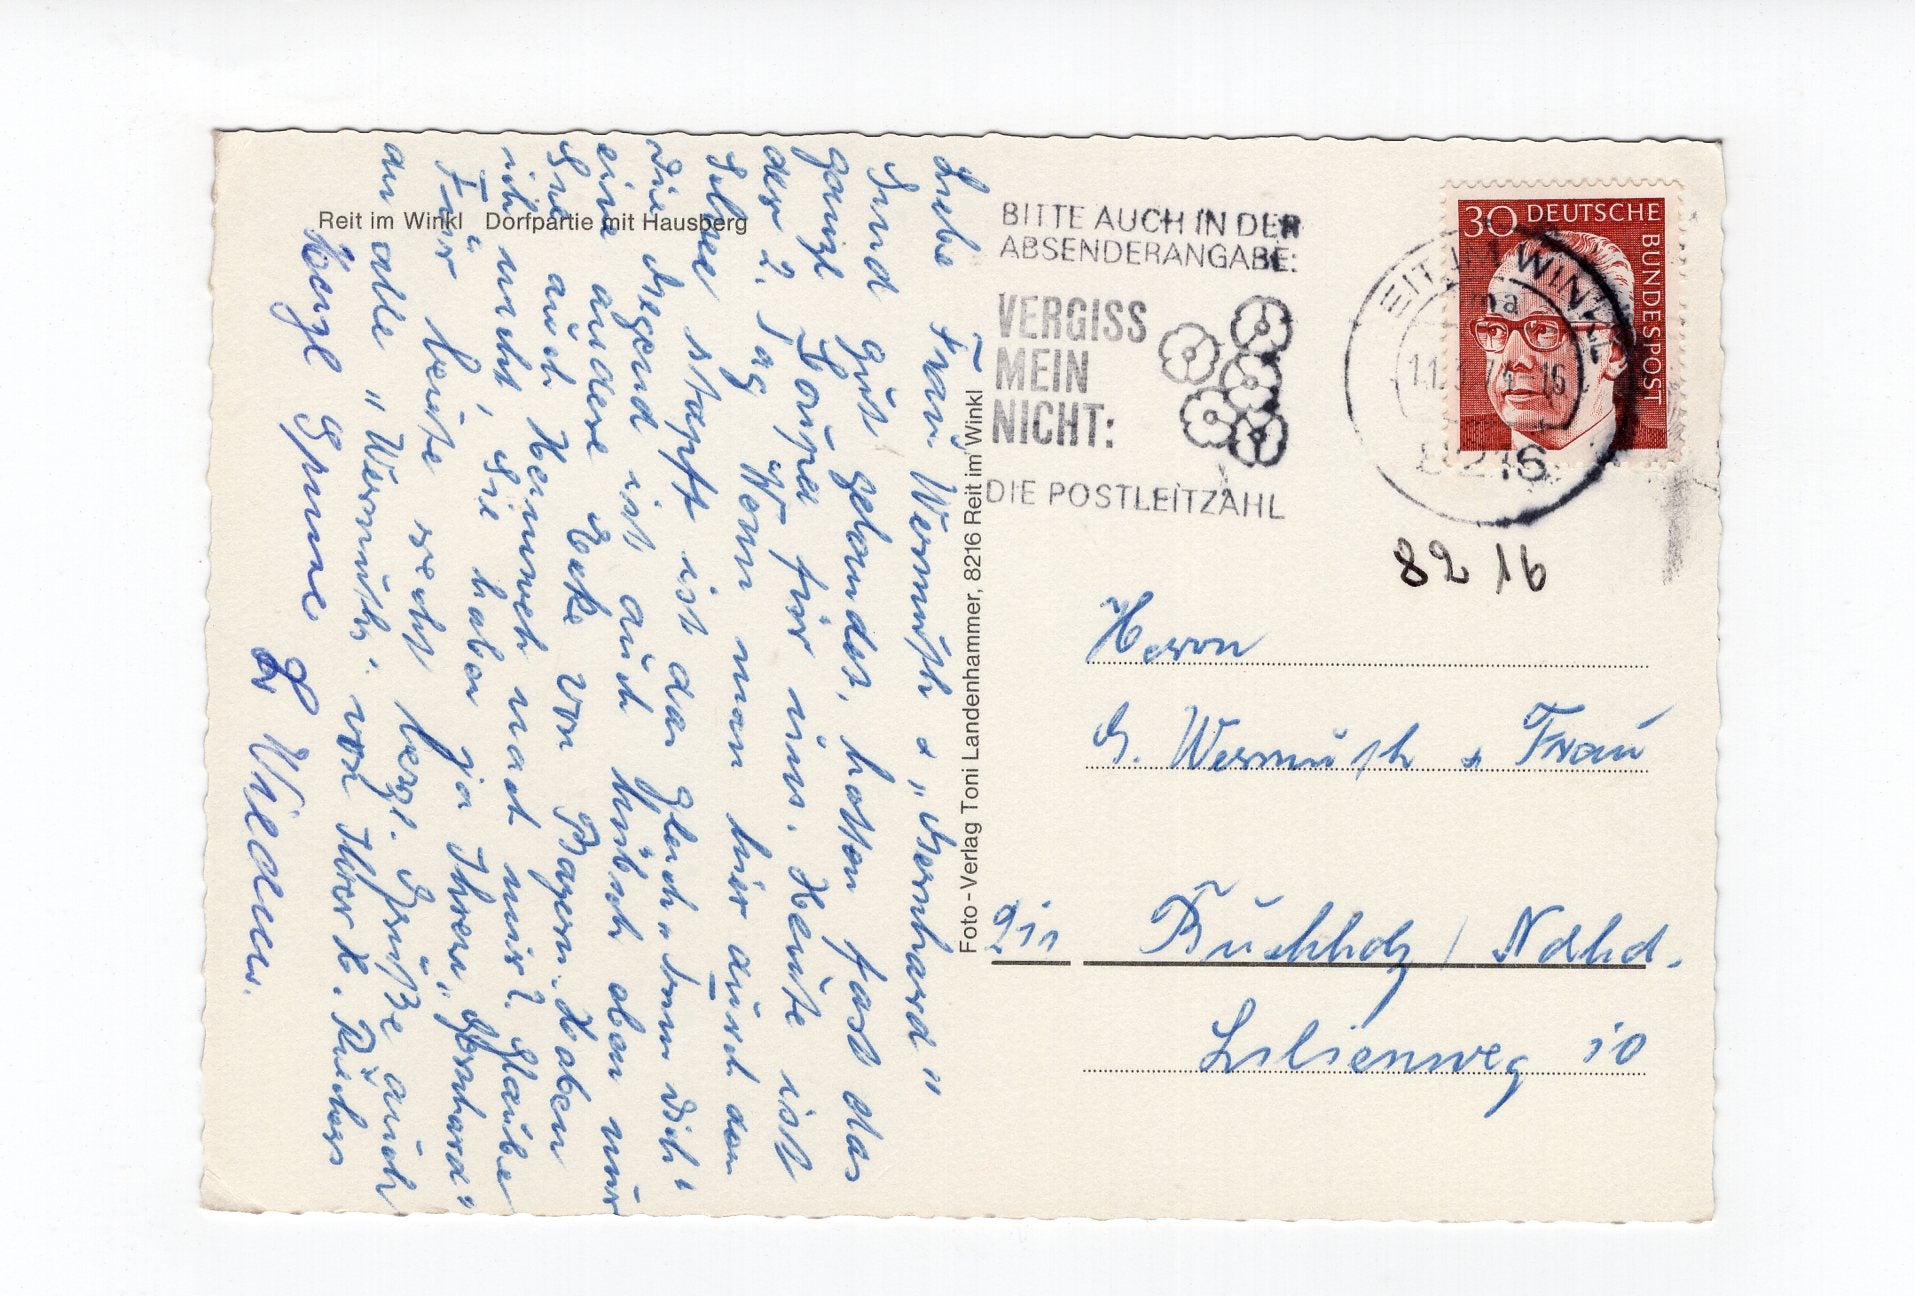 Reit im Winkl   Dorfpartie mit Hausberg
Liebe Frau Wermuth & „Bernhard"
Sind gut gelandet, hatten fast das
ganze für uns. Heute ist
der 2. Tag. Wenn man hier durch den
Schnee stapft ist das Gleich denn Dich"
die Gegend ist auch hübsch eben nur
eine andere Ecke von Bayern. Haben
Sie auch Heimweh nach mir? Glaube
ich nicht, Sie haben ja Ihren „Bernhard"
Für heute recht herzl. Grüße auch
an alle „Wermuths" von Ihrer H.
Herzl Grüße
Foto-Verlag Toni Landenhammer, 8216 Reit im Winkl
BITTE AUCH IN DER
ABSENDERANGABE:
VERGISS
MEIN
NICHT:
DIE POSTLEITZAHL
30 DEUTSCHE
BUNDESPOST
REIT IM WINKL
8216
8216
Herrn
G. Wermuth & Frau
211 Buchholz / Ndhd.
Lilienweg 10